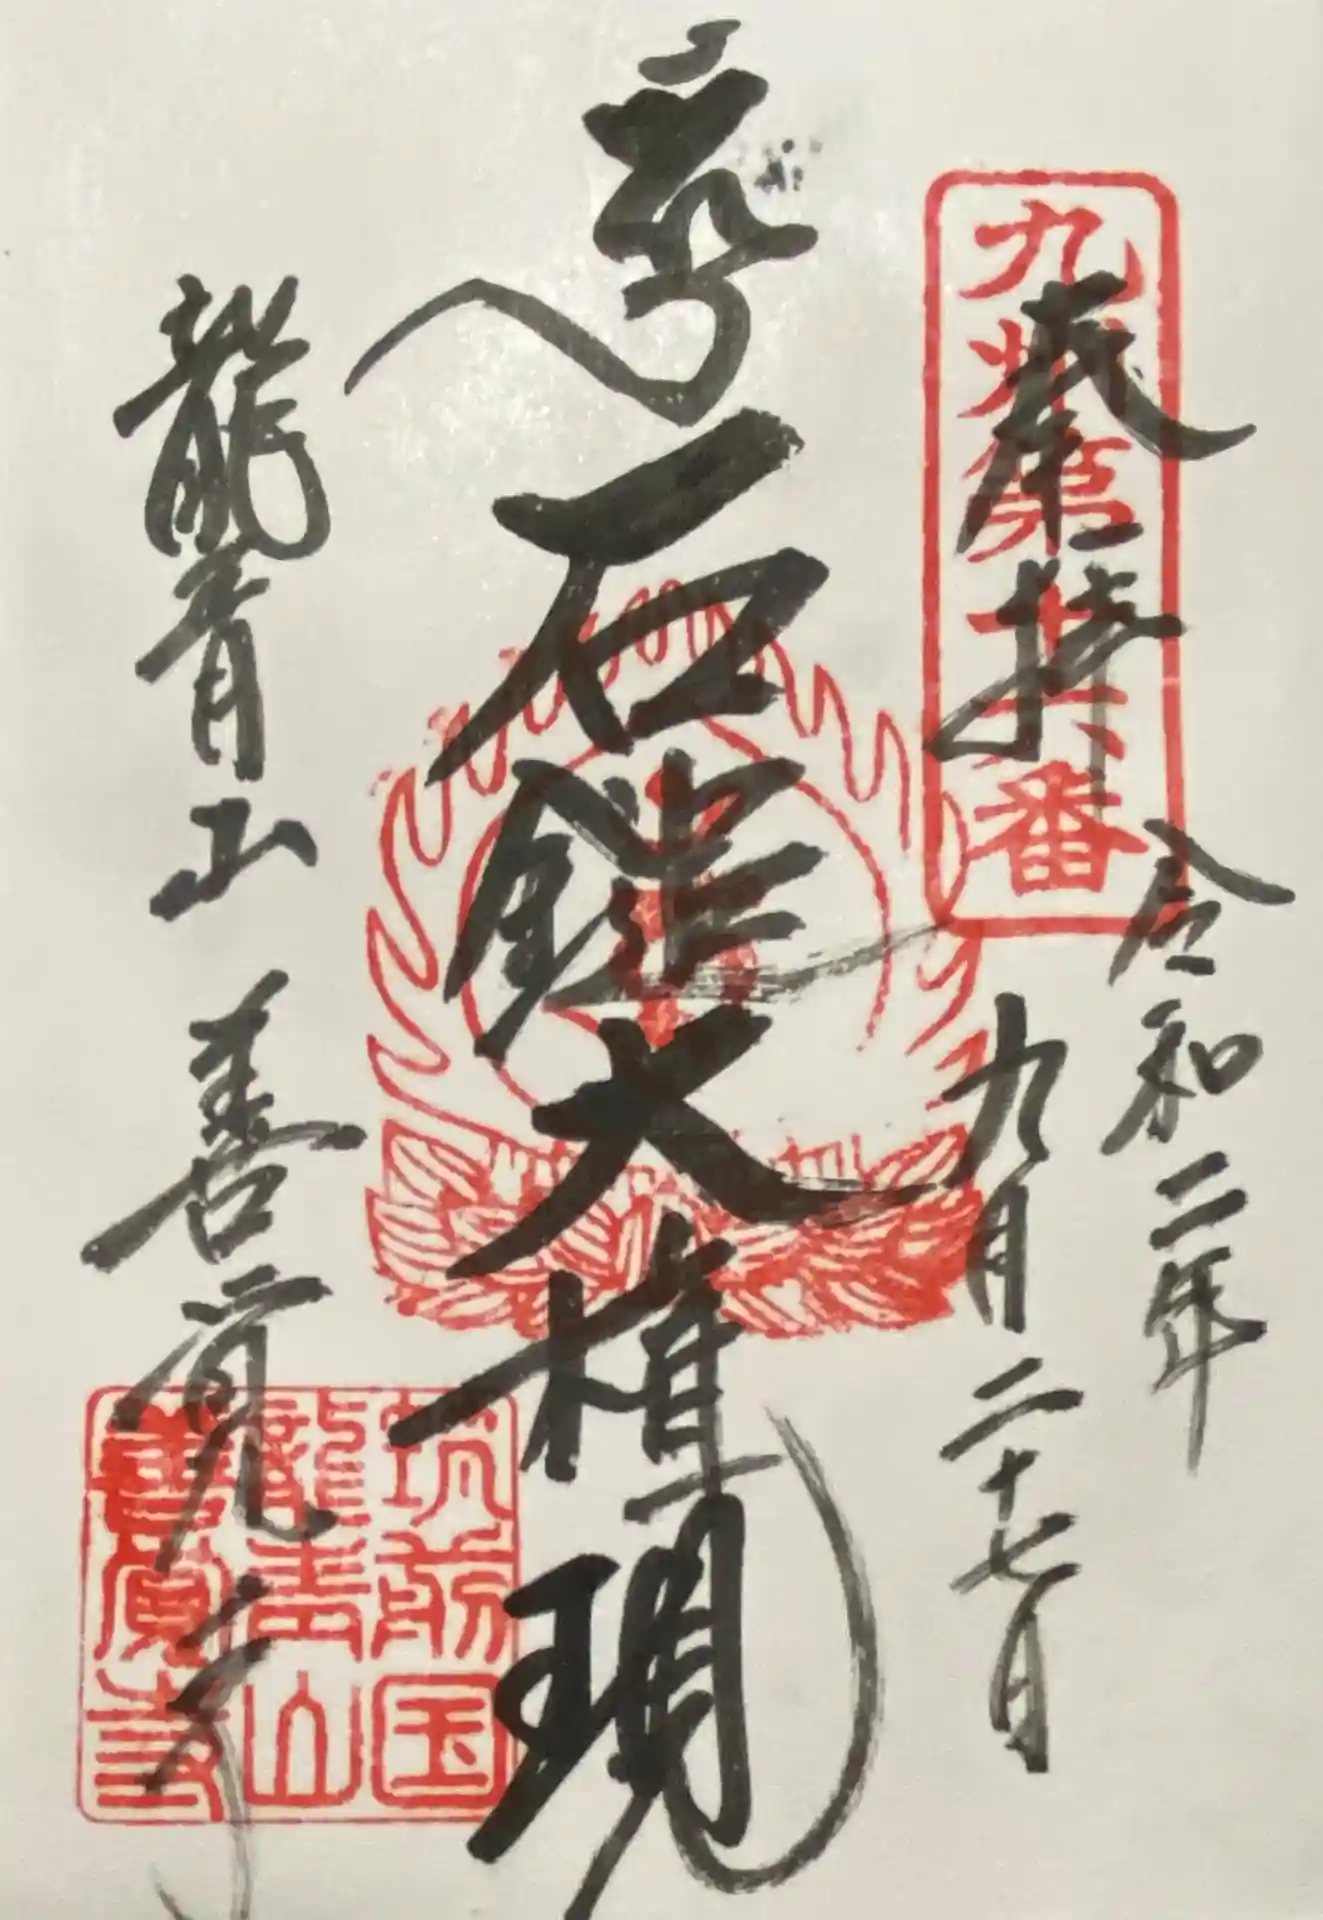 九州第十六番
奉拝
令和二年
九月二十七日
石鎚大権現
龍青山 善覚寺
筑前国
龍青山
善覚寺